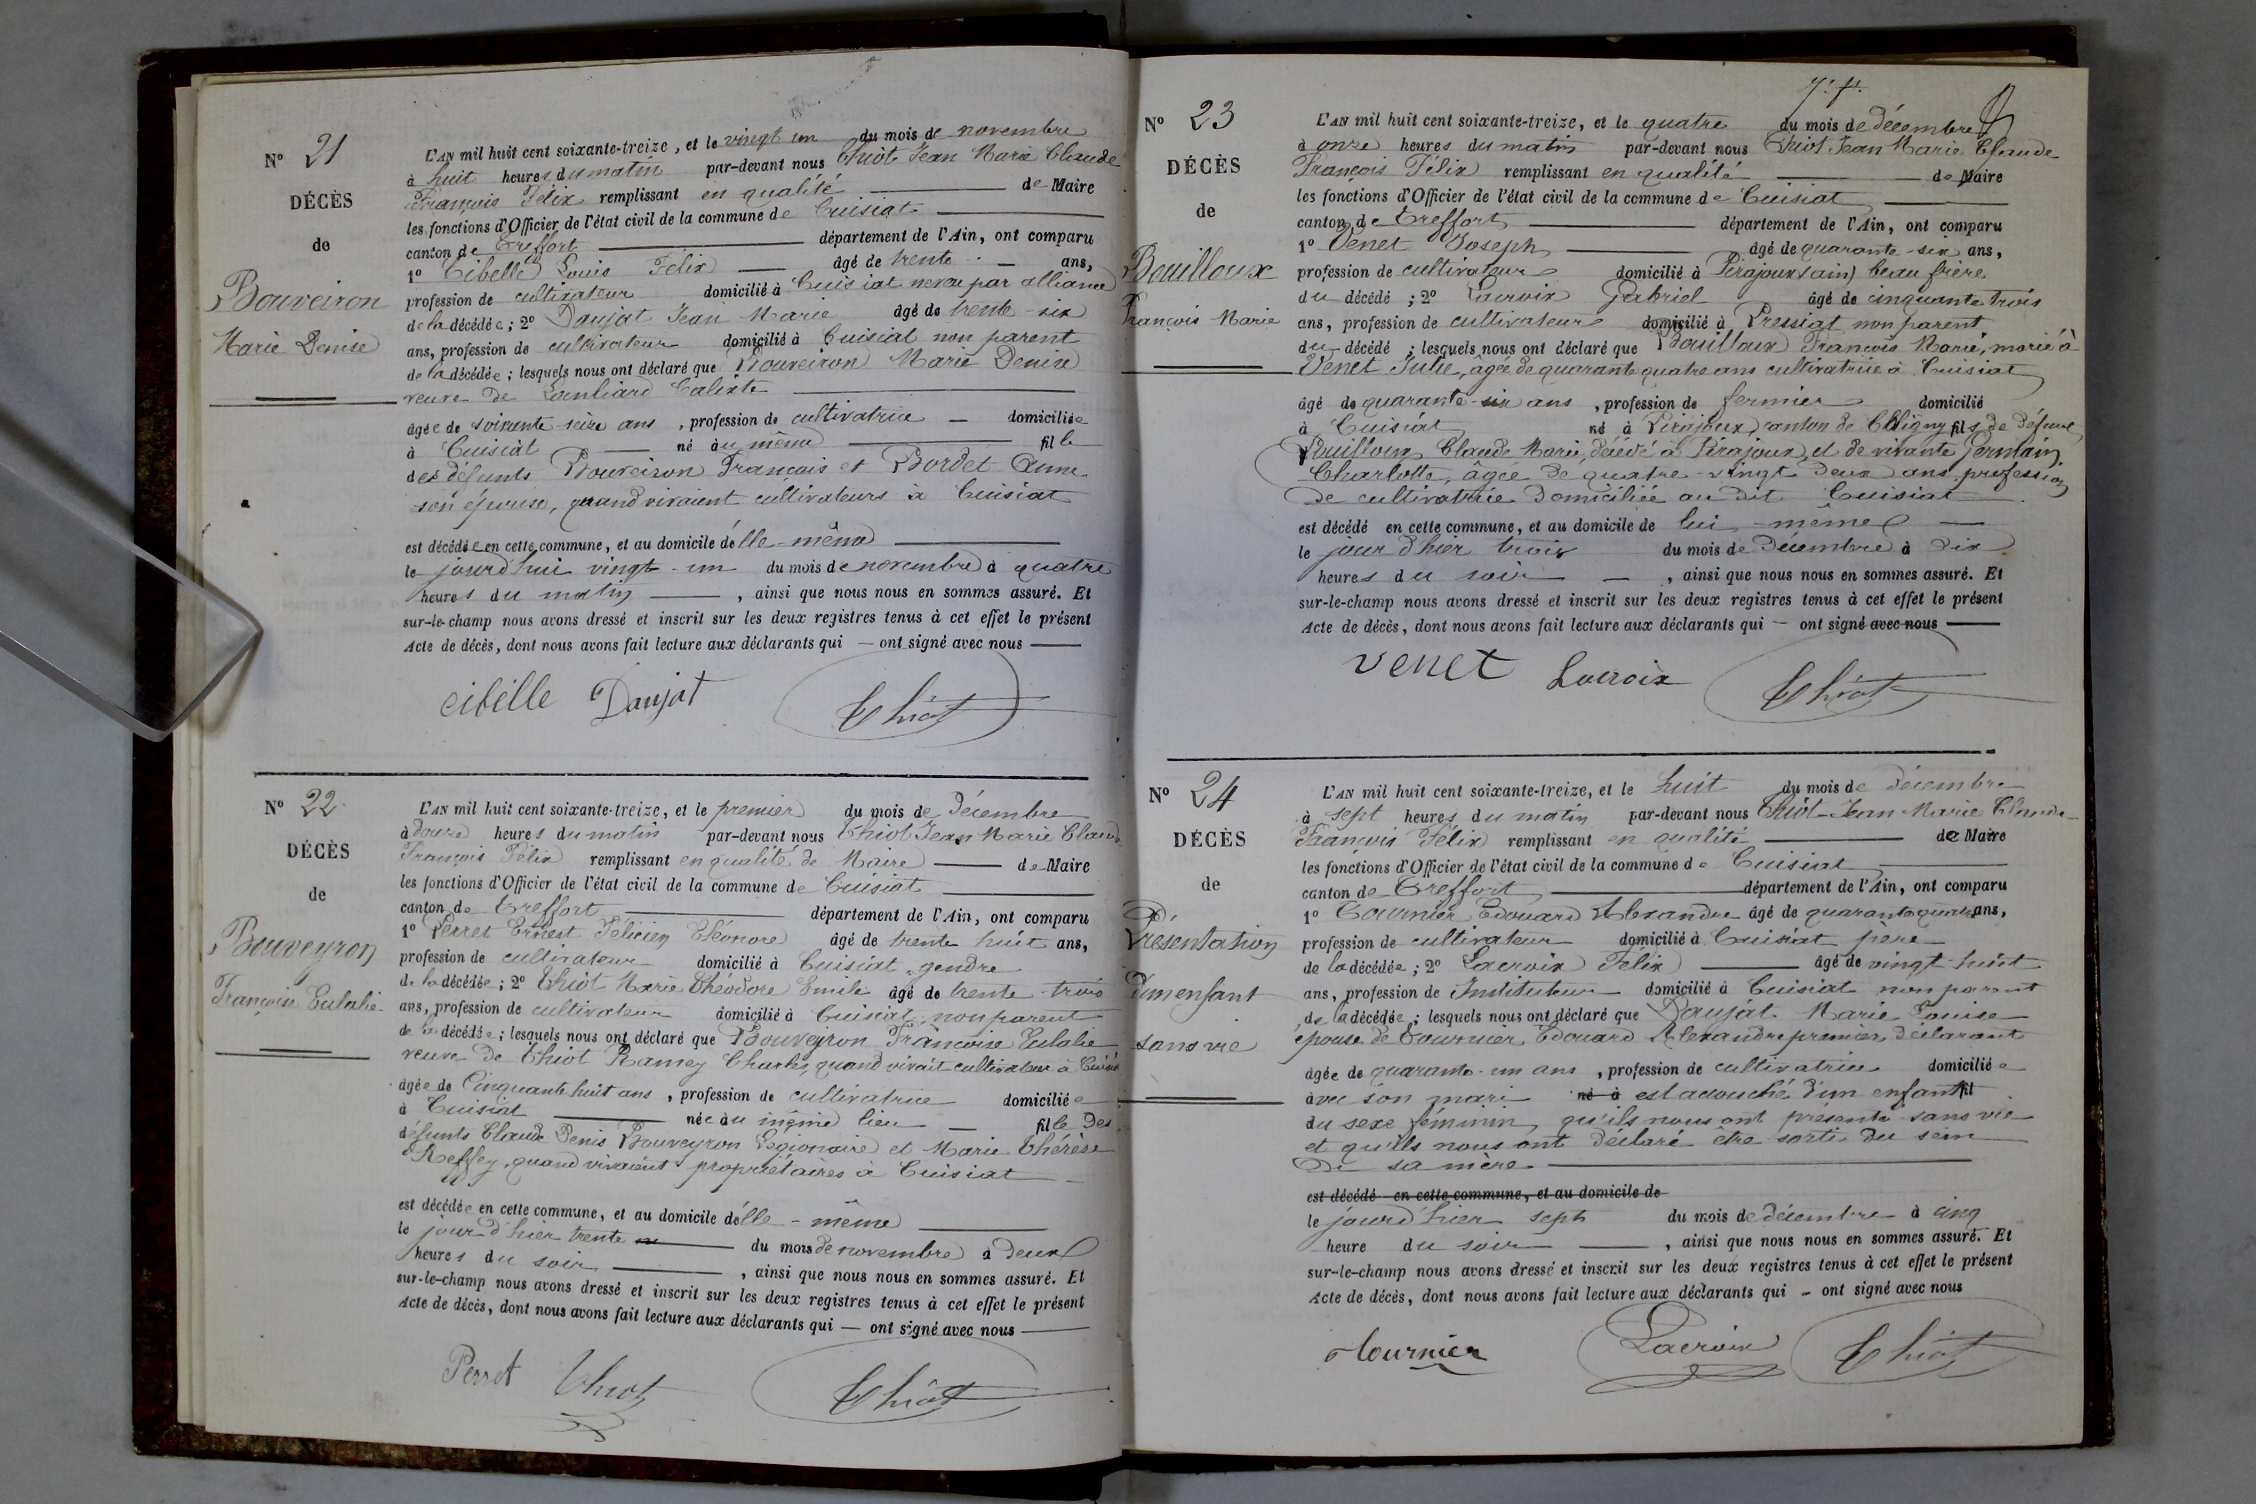 N° 21
DÉCÈS
de
Bouveiron
Marie Denise
L'AN mil huit cent soixante-treize, et le vingt un du mois de novembre
à huit heures du matin par-devant nous Thiot Jean Marie Claude
François Félix remplissant en qualité de Maire
les fonctions d'Officier de l'état civil de la commune de Cuisiat
canton de Treffort département de l'Ain, ont comparu
1° Cibelle Louis Félix âgé de trente ans,
profession de cultivateur domicilié à Cuisiat neveu par alliance
de la décédée; 2° Daujat Jean Marie âgé de trente-six
ans, profession de cultivateur domicilié à Cuisiat non parent
de la décédée; lesquels nous ont déclaré que Bouveiron Marie Denise
veuve de Calixte
âgée de soixante-seize ans, profession de cultivatrice domiciliée
à Cuisiat né au même fille
des défunts Bouveiron François et Bordet Anne
son épouse, quand vivaient cultivateurs à Cuisiat
est décédée en cette commune, et au domicile d'elle-même
le jourd'hui vingt-un du mois de novembre à quatre
heures du matin, ainsi que nous nous en sommes assuré. Et
sur-le-champ nous avons dressé et inscrit sur les deux registres tenus à cet effet le présent
Acte de décès, dont nous avons fait lecture aux déclarants qui — ont signé avec nous
cibelle Daujat Thiot
N° 22
DÉCÈS
de
Bouveyron
Françoise Eulalie
L'AN mil huit cent soixante-treize, et le premier du mois de Décembre
à douze heures du matin par-devant nous Thiot Jean Marie Claude
François Félix remplissant en qualité de Maire de Maire
les fonctions d'Officier de l'état civil de la commune de Cuisiat
canton de Treffort département de l'Ain, ont comparu
1° Perret Ernest Félicien Eléonore âgé de trente huit ans,
profession de cultivateur domicilié à Cuisiat gendre
de la décédée; 2° Thiot Marie Théodore Emile âgé de trente-trois
ans, profession de cultivateur domicilié à Cuisiat, non parent
de la décédée; lesquels nous ont déclaré que Bouveyron Françoise Eulalie
veuve de Thiot Ramey Charles, quand vivait cultivateur à Cuisiat
âgée de Cinquante huit ans, profession de cultivatrice domiciliée
à Cuisiat née au même lieu fille des
défunts Claude Denis Bouveyron Légionaire et Marie Thérèse
Reffey, quand vivaient propriétaires à Cuisiat
est décédée en cette commune, et au domicile d'elle-même
le jour d'hier trente du mois de novembre à deux
heures du soir, ainsi que nous nous en sommes assuré. Et
sur-le-champ nous avons dressé et inscrit sur les deux registres tenus à cet effet le présent
Acte de décès, dont nous avons fait lecture aux déclarants qui — ont signé avec nous
Perret Thiot Thiot
N° 23
DÉCÈS
de
Bouilloux
François Marie
L'AN mil huit cent soixante-treize, et le quatre du mois de décembre
à onze heures du matin par-devant nous Thiot Jean Marie Claude
François Félix remplissant en qualité de Maire
les fonctions d'Officier de l'état civil de la commune de Cuisiat
canton de Treffort département de l'Ain, ont comparu
1° Venet Joseph âgé de quarante-six ans,
profession de cultivateur domicilié à Pirajoux (ain) beau frère
du décédé; 2° Lacroix Gabriel âgé de cinquante trois
ans, profession de cultivateur domicilié à Pressiat non parent
du décédé; lesquels nous ont déclaré que Bouilloux François Marie, marié à
Venet Julie, âgée de quarante quatre ans cultivatrice à Cuisiat
âgé de quarante-six ans, profession de fermier domicilié
à Cuisiat né à Pirajoux, canton de Coligny fils de défunt
Bouilloux Claude Marie, décédé à Pirajoux, et de vivante Germain
Charlotte, âgée de quatre-vingt deux ans profession
de cultivatrice domiciliée au dit Cuisiat
est décédé en cette commune, et au domicile de lui-même
le jour d'hier trois du mois de Décembre à Dix
heures du soir, ainsi que nous nous en sommes assuré. Et
sur-le-champ nous avons dressé et inscrit sur les deux registres tenus à cet effet le présent
Acte de décès, dont nous avons fait lecture aux déclarants qui — ont signé avec nous
venet Lacroix Thiot
N° 24
DÉCÈS
de
Présentation
d'un enfant
sans vie
L'AN mil huit cent soixante-treize, et le huit du mois de décembre
à sept heures du matin par-devant nous Thiot Jean Marie Claude
François Félix remplissant en qualité de Maire
les fonctions d'Officier de l'état civil de la commune de Cuisiat
canton de Treffort département de l'Ain, ont comparu
1° Tournier Edouard Alexandre âgé de quarante quatre ans,
profession de cultivateur domicilié à Cuisiat père
de la décédée; 2° Lacroix Félix âgé de vingt-huit
ans, profession de Instituteur domicilié à Cuisiat non parent
de la décédée; lesquels nous ont déclaré que Daujat Marie Louise
épouse de Tournier Edouard Alexandre premier déclarant
âgée de quarante-un ans, profession de cultivatrice domiciliée
avec son mari né à est accouché d'un enfant fil
du sexe féminin, qu'ils nous ont présenté sans vie
et qu'ils nous ont déclaré être sorti du sein
de sa mère
est décédé en cette commune, et au domicile de
le jour d'hier sept du mois de décembre à cinq
heure du soir, ainsi que nous nous en sommes assuré. Et
sur-le-champ nous avons dressé et inscrit sur les deux registres tenus à cet effet le présent
Acte de décès, dont nous avons fait lecture aux déclarants qui — ont signé avec nous
Tournier Lacroix Thiot